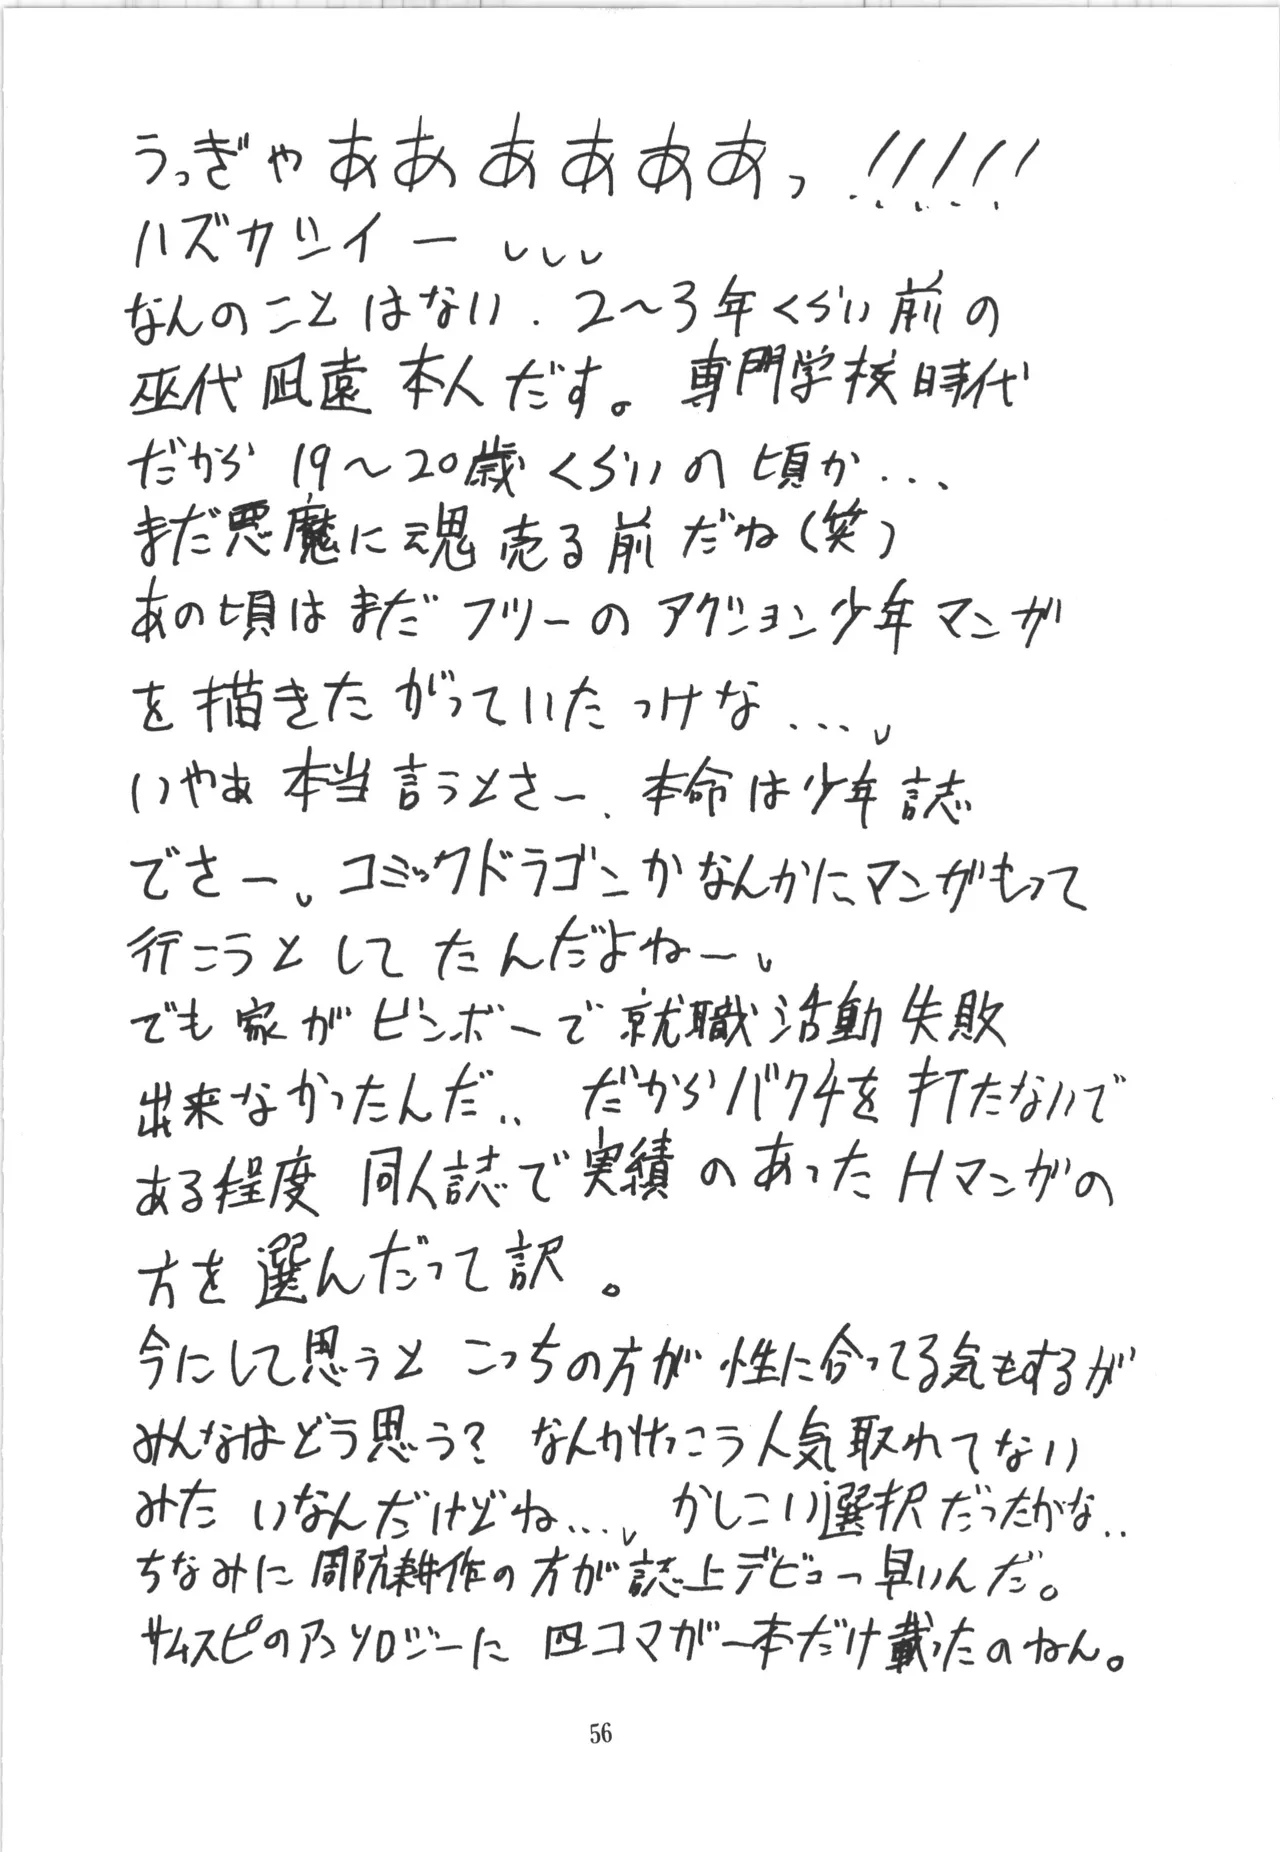 うっぎゃあああああああっ!!!!!
ハズカシイー
なんのことはない、2〜3年くらい前の
巫代凪遠本人だす。専門学校時代
だから19〜20歳くらいの頃か...、
まだ悪魔に魂売る前だね(笑)
あの頃はまだフツーのアクション少年マンガ
を描きたがっていたっけな...
いやぁ本当言うとさー、本命は少年誌
でさー。コミックドラゴンかなんかにマンガもって
行こうとしてたんだよねー
でも家がビンボーで就職活動失敗
出来なかったんだ.. だからバクチを打たないで
ある程度同人誌で実績のあったHマンガの
方を選んだって訳。
今にして思うとこっちの方が性に合ってる気もするが
みんなはどう思う?なんかけっこう人気取れてない
みたいなんだけどね... かしこい選択だったかな..
ちなみに周防耕作の方が誌上デビュー早いんだ。
サムスピのアンソロジーに四コマが一本だけ載ったのねん。
56